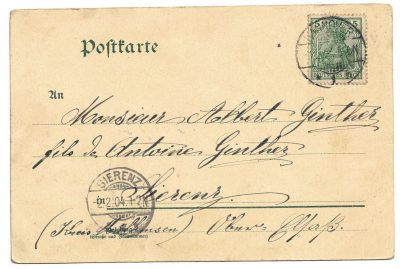 Postkarte
An
Monsieur Albert Ginther
fils de Antoine Ginther
Sierenz
(Kreis Mülhausen) Ober-Elsaß
SIERENZ
2.04.